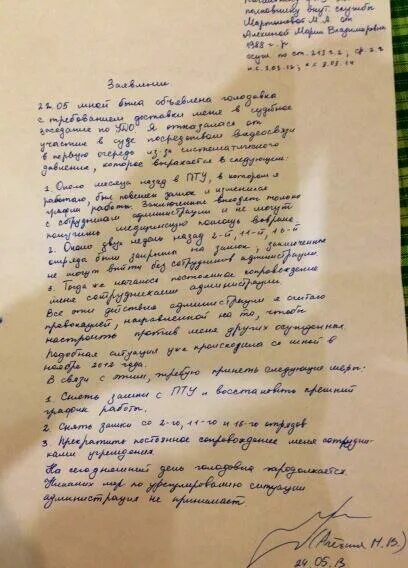 полковнику внут. службы
Мартыновой М.А. от
Алехиной Марии Владимировны
1988 г.р.
осуж. по ст. 213 ч.2, ср. 2 г.
н.с. 3.03.12, к.с. 3.03.14
Заявление.
22.05 мной была объявлена голодовка
с требованием доставки меня в судебное
заседание по УДО. Я отказалась от
участия в суде посредством видеосвязи
в первую очередь из-за систематического
давления, которое выражается в следующем:
1. Около месяца назад в ПТУ, в котором я
работаю, был повешен замок и изменился
график работы. Заключенные входят только
с сотрудником администрации и не могут
получить медицинскую помощь вовремя.
2. Около двух недель назад 2-й, 11-й, 16-й
отряда были закрыты на замок, заключенные
не могут выйти без сотрудников администрации
3. Тогда же началось постоянное сопровождение
меня сотрудниками администрации.
Все эти действия администрации я считаю
провокацией, направленной на то, чтобы
настроить против меня других осужденных
Подобная ситуация уже происходила со мной в
ноябре 2012 года.
В связи с этим, требую принять следующие меры:
1. Снять замки с ПТУ и восстановить прежний
график работы.
2. Снять замки со 2-го, 11-го и 16-го отрядов
3. Прекратить постоянное сопровождение меня сотрудни-
ками учреждения.
На сегодняшний день голодовка продолжается.
Никаких мер по урегулированию ситуации
администрация не принимает.
(Алёхина М.В.)
24.05.13